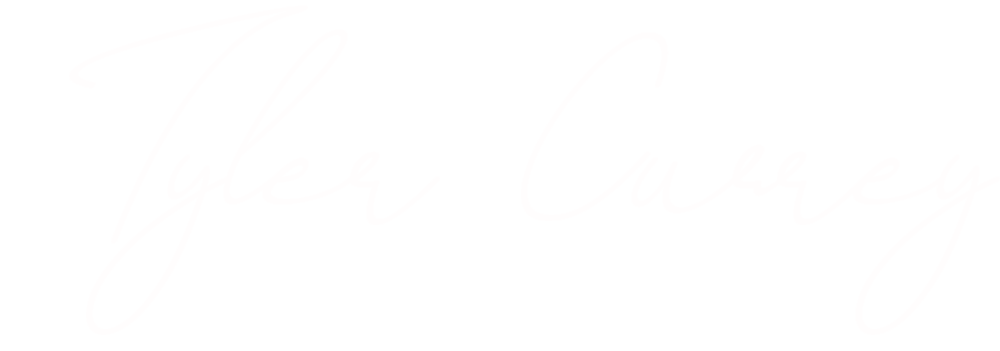 Tyler Currey